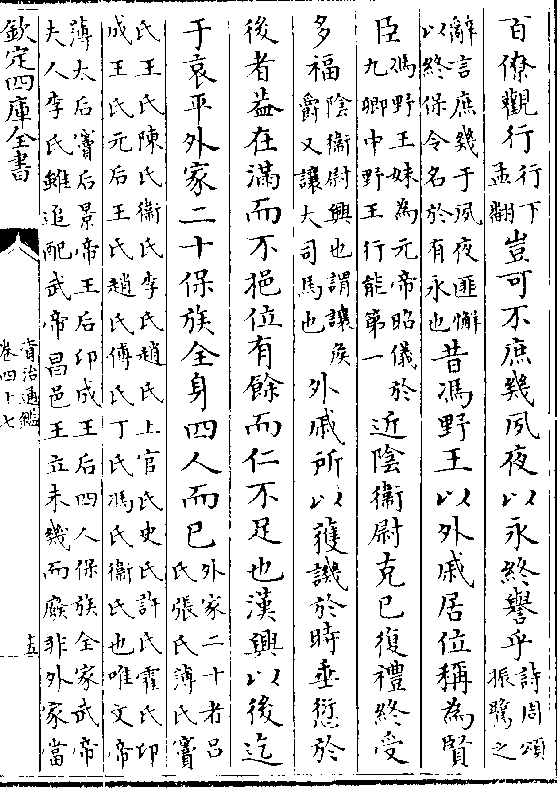 百僚觀行行下孟翻豈可不庶幾夙夜以永終譽乎詩周頌振鷺之
辭言庶幾于夙夜匪懈以終保令名於有永也昔馮野王以外戚居位稱為賢
臣馮野王妹為元帝昭儀於九卿中野王行能第一近陰衞尉克已復禮終受
多福陰衞尉興也謂讓侯爵又讓大司馬也外戚所以獲譏於時垂愆於
後者葢在滿而不挹位有餘而仁不足也漢興以後迄
于哀平外家二十保族全身四人而已外家二十者呂氏張氏薄氏竇
氏王氏陳氏衞氏李氏趙氏上官氏史氏許氏霍氏卭成王氏元后王氏趙氏傅氏丁氏馮氏衞氏也唯文帝
薄太后竇后景帝王后卭成王后四人保族全家武帝夫人李氏雖追配武帝昌邑王立未幾而廢非外家當
欽定四庫全書
資治通鑑
卷四十七
十五